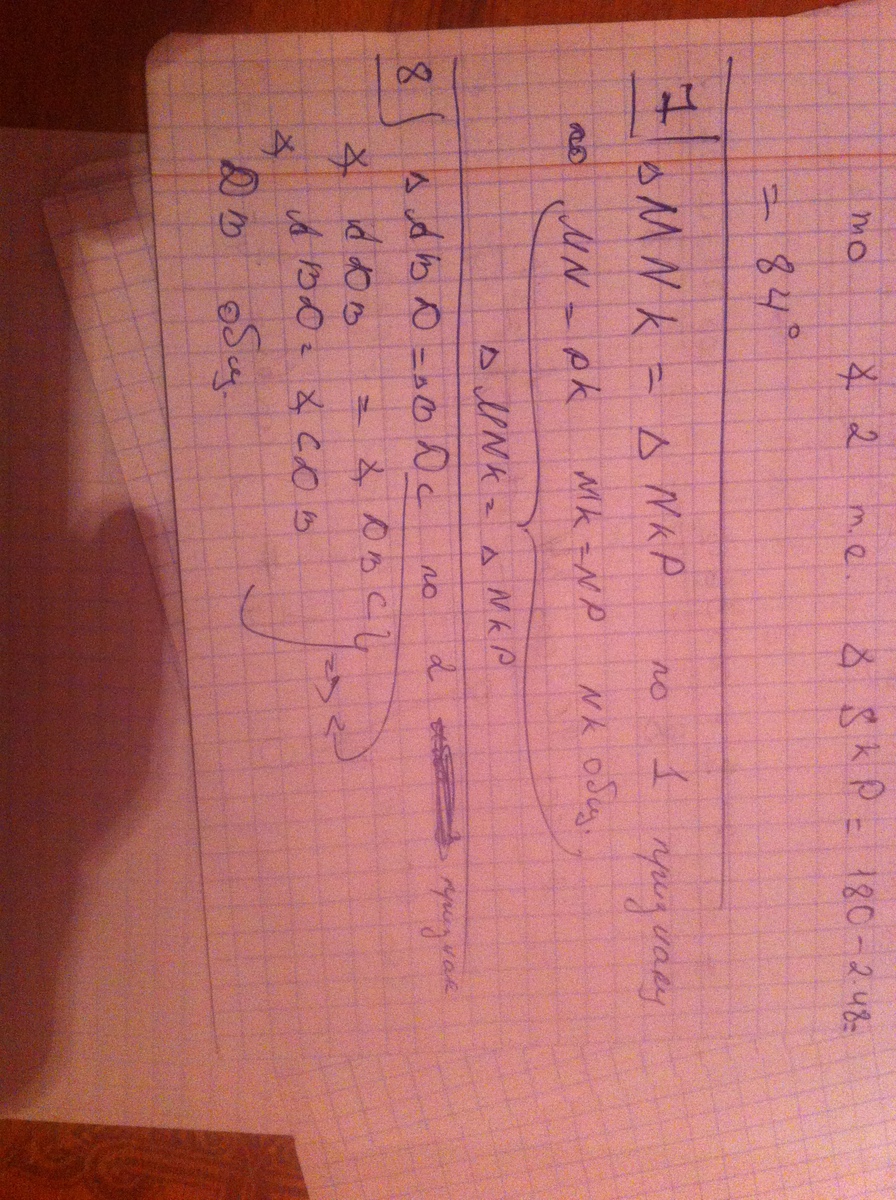 то ∡ 2 т.е. ∡ SKP = 180 - 2·48 =
= 84°
7 ΔMNK = ΔNKP по 1 признаку
по MN = PK MK = NP NK общ.
ΔMNK = ΔNKP
8 ΔABD = ΔBDC по 2 признак
∡ ADB = ∡ DBC
∡ ABD = ∡ CDB => =
DB общ.